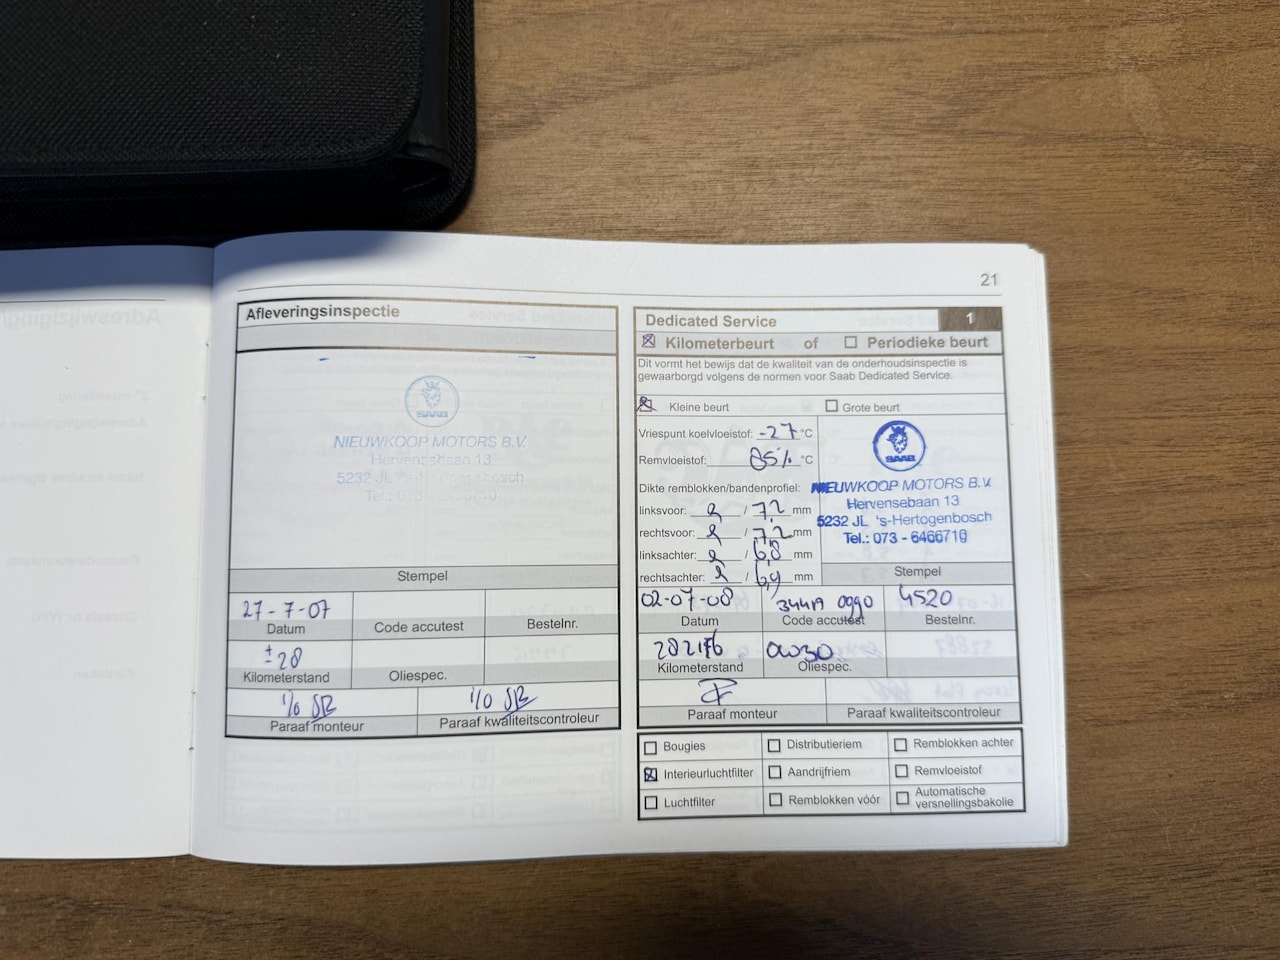 21
Afleveringsinspectie
SAAB
NIEUWKOOP MOTORS B.V.
Hervensebaan 13
5232 JL 's-Hertogenbosch
Tel.: 073 - 6466710
Stempel
27-7-07
Datum
Code accutest
Bestelnr.
±28
Kilometerstand
Oliespec.
Paraaf monteur
Paraaf kwaliteitscontroleur
Dedicated Service 1
Kilometerbeurt of Periodieke beurt
Dit vormt het bewijs dat de kwaliteit van de onderhoudsinspectie is
gewaarborgd volgens de normen voor Saab Dedicated Service.
Kleine beurt Grote beurt
Vriespunt koelvloeistof: -27 °C
Remvloeistof: 85% °C
Dikte remblokken/bandenprofiel:
linksvoor: / 7,2 mm
rechtsvoor: / 7,2 mm
linksachter: / 6,8 mm
rechtsachter: / 6,9 mm
SAAB
NIEUWKOOP MOTORS B.V.
Hervensebaan 13
5232 JL 's-Hertogenbosch
Tel.: 073 - 6466710
Stempel
02-07-08
4520
Datum
Code accutest
Bestelnr.
0W30
Kilometerstand
Oliespec.
Paraaf monteur
Paraaf kwaliteitscontroleur
Bougies Distributieriem Remblokken achter
Interieurluchtfilter Aandrijfriem Remvloeistof
Luchtfilter Remblokken vóór Automatische
versnellingsbakolie